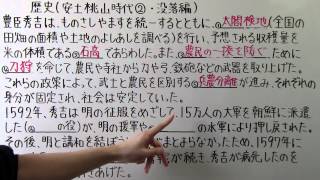 歴史(安土桃山時代②・没落編)
豊臣秀吉は、ものさしやますを統一するとともに、太閤検地(全国の
田畑の面積や土地のよしあしを調べる)を行い、予想される収穫量を
米の体積である石高であらわした。また、農民の一揆を防ぐために
刀狩を命じて、農民や寺社から刀や弓、鉄砲などの武器を取り上げた。
これらの政策によって、武士と農民を区別する兵農分離が進み、それぞれの
身分が固定され、社会は安定していった。
1592年、秀吉は明の征服をめざして、15万人の大軍を朝鮮に派遣
した( の役)が、明の援軍や の水軍により押し戻された。
その後、明と講和を結ぼう まとまらなかったため、1597年に
が続き、秀吉が病死したのを
あげた。